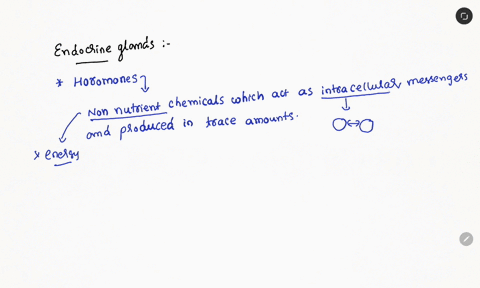 Endocrine glands :-
* Horomones
Non nutrient chemicals which act as intracellular messengers
and produced in trace amounts.
* energy